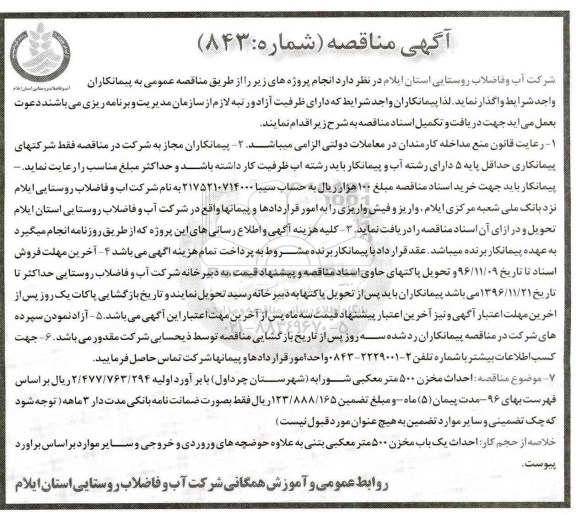 آگهی مناقصه (شماره: ۸۴۳)
آب و فاضلاب روستایی استان ایلام
شرکت آب و فاضلاب روستایی استان ایلام در نظر دارد انجام پروژه های زیر را از طریق مناقصه عمومی به پیمانکاران
واجد شرایط واگذار نماید. لذا پیمانکاران واجد شرایط که دارای ظرفیت آزاد و رتبه لازم از سازمان مدیریت و برنامه ریزی می باشند دعوت
بعمل می آید جهت دریافت و تکمیل اسناد مناقصه به شرح زیر اقدام نمایند.
۱- رعایت قانون منع مداخله کارمندان در معاملات دولتی الزامی میباشد. ۲- پیمانکاران مجاز به شرکت در مناقصه فقط شرکتهای
پیمانکاری حداقل پایه ۵ دارای رشته آب و پیمانکار باید رشته اب ظرفیت کار داشته باشد و حداکثر مبلغ مناسب را رعایت نماید. –
پیمانکار باید جهت خرید اسناد مناقصه مبلغ ۱۰۰ هزار ریال به حساب سیبا ۲۱۷۵۲۱۰۷۱۴۰۰۰ به نام شرکت اب و فاضلاب روستایی ایلام
نزد بانک ملی شعبه مرکزی ایلام، واریز و فیش واریزی را به امور قراردادها و پیمانها واقع در شرکت آب و فاضلاب روستایی استان ایلام
تحویل و در ازای آن اسناد مناقصه را دریافت نماید. ۳- کلیه هزینه آگهی و اطلاع رسانی های این پروژه که از طریق روزنامه انجام میگیرد
به عهده پیمانکار برنده میباشد. عقد قرارداد با پیمانکار برنده مشروط به پرداخت تمام هزینه اگهی می باشد ۴- آخرین مهلت فروش
اسناد تا تاریخ ۹۶/۱۱/۰۹ و تحویل پاکتهای حاوی اسناد مناقصه و پیشنهاد قیمت، به دبیرخانه شرکت آب و فاضلاب روستایی حداکثر تا
تاریخ ۱۳۹۶/۱۱/۲۱ می باشد پیمانکاران باید پس از تحویل پاکتها به دبیرخانه رسید تحویل نمایند و تاریخ بازگشایی پاکات یک روز پس از
اخرین مهلت اعتبار آگهی و نیز آخرین اعتبار پیشنهاد قیمت سه ماه پس از آخرین مهت اعتبار این آگهی می باشد. ۵- آزاد نمودن سپرده
های شرکت در مناقصه پیمانکاران رد شده سه روز پس از تاریخ بازگشایی مناقصه توسط ذیحسابی شرکت مقدور می باشد. ۶- جهت
کسب اطلاعات بیشتر با شماره تلفن ۲-۲۲۲۹۰۰۱-۰۸۴۳ واحد امور قراردادها و پیمانها شرکت تماس حاصل فرمایید.
۷- موضوع مناقصه: احداث مخزن ۵۰۰ متر معکبی شورابه (شهرستان چرداول) با برآورد اولیه ۲/۴۷۷/۷۶۳/۲۹۴ ریال بر اساس
فهرست بهای ۹۶- مدت پیمان (۵) ماه- و مبلغ تضمین ۱۲۳/۸۸۸/۱۶۵ ریال فقط بصورت ضمانت نامه بانکی مدت دار ۳ ماهه (توجه شود
که چک تضمینی و سایر موارد تضمین به هیچ عنوان مورد قبول نیست)
خلاصه از حجم کار: احداث یک باب مخزن ۵۰۰ متر معکبی بتنی به علاوه حوضچه های ورودی و خروجی و سایر موارد بر اساس براورد
پیوست.
روابط عمومی و آموزش همگانی شرکت آب و فاضلاب روستایی استان ایلام
۰۲۱-۸۸۳۴۹۶۷۰-۵